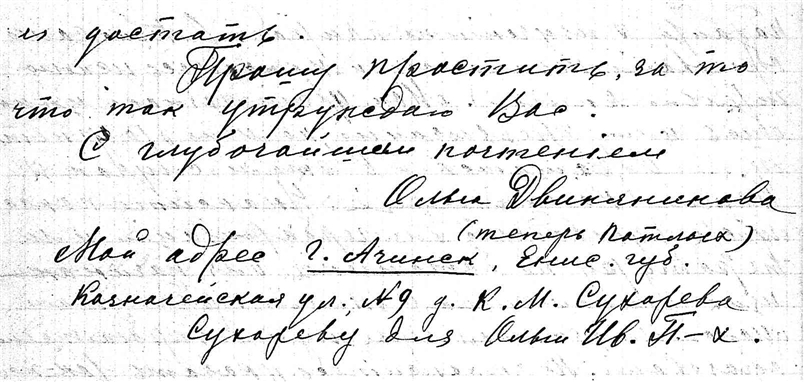 достать.
Прошу простить, за то
что так утруждаю Вас.
С глубочайшим почтением
Ольга Двинянинова
(теперь Патлых)
Мой адрес г. Ачинск, Енис. губ.
Казначейская ул., № 9 д. К. М. Сухарева
Сухареву для Ольги Ив. П-х.